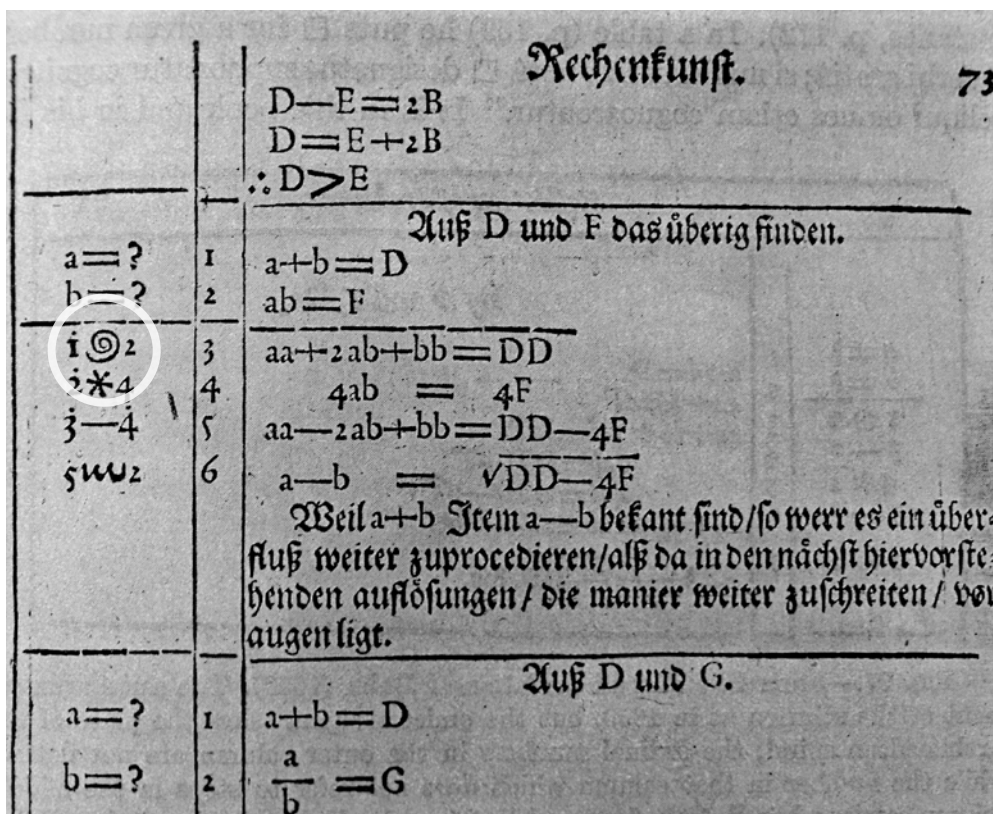 Rechenkunst. 73
D—E=2B
D=E+2B
∴D>E
Auß D und F das überig finden.
a=? 1 a+b=D
b=? 2 ab=F
1̇ 2 3 aa+2ab+bb=DD
2̇*4 4 4ab = 4F
3̇—4̇ 5 aa—2ab+bb=DD—4F
5ɯ2 6 a—b = √DD—4F
Weil a+b Item a—b bekant sind/so werr es ein über=
fluß weiter zuprocedieren/alß da in den nächst hiervorste=
henden auflösungen / die manier weiter zuschreiten / vor
augen ligt.
Auß D und G.
a=? 1 a+b=D
b=? 2 a/b =G